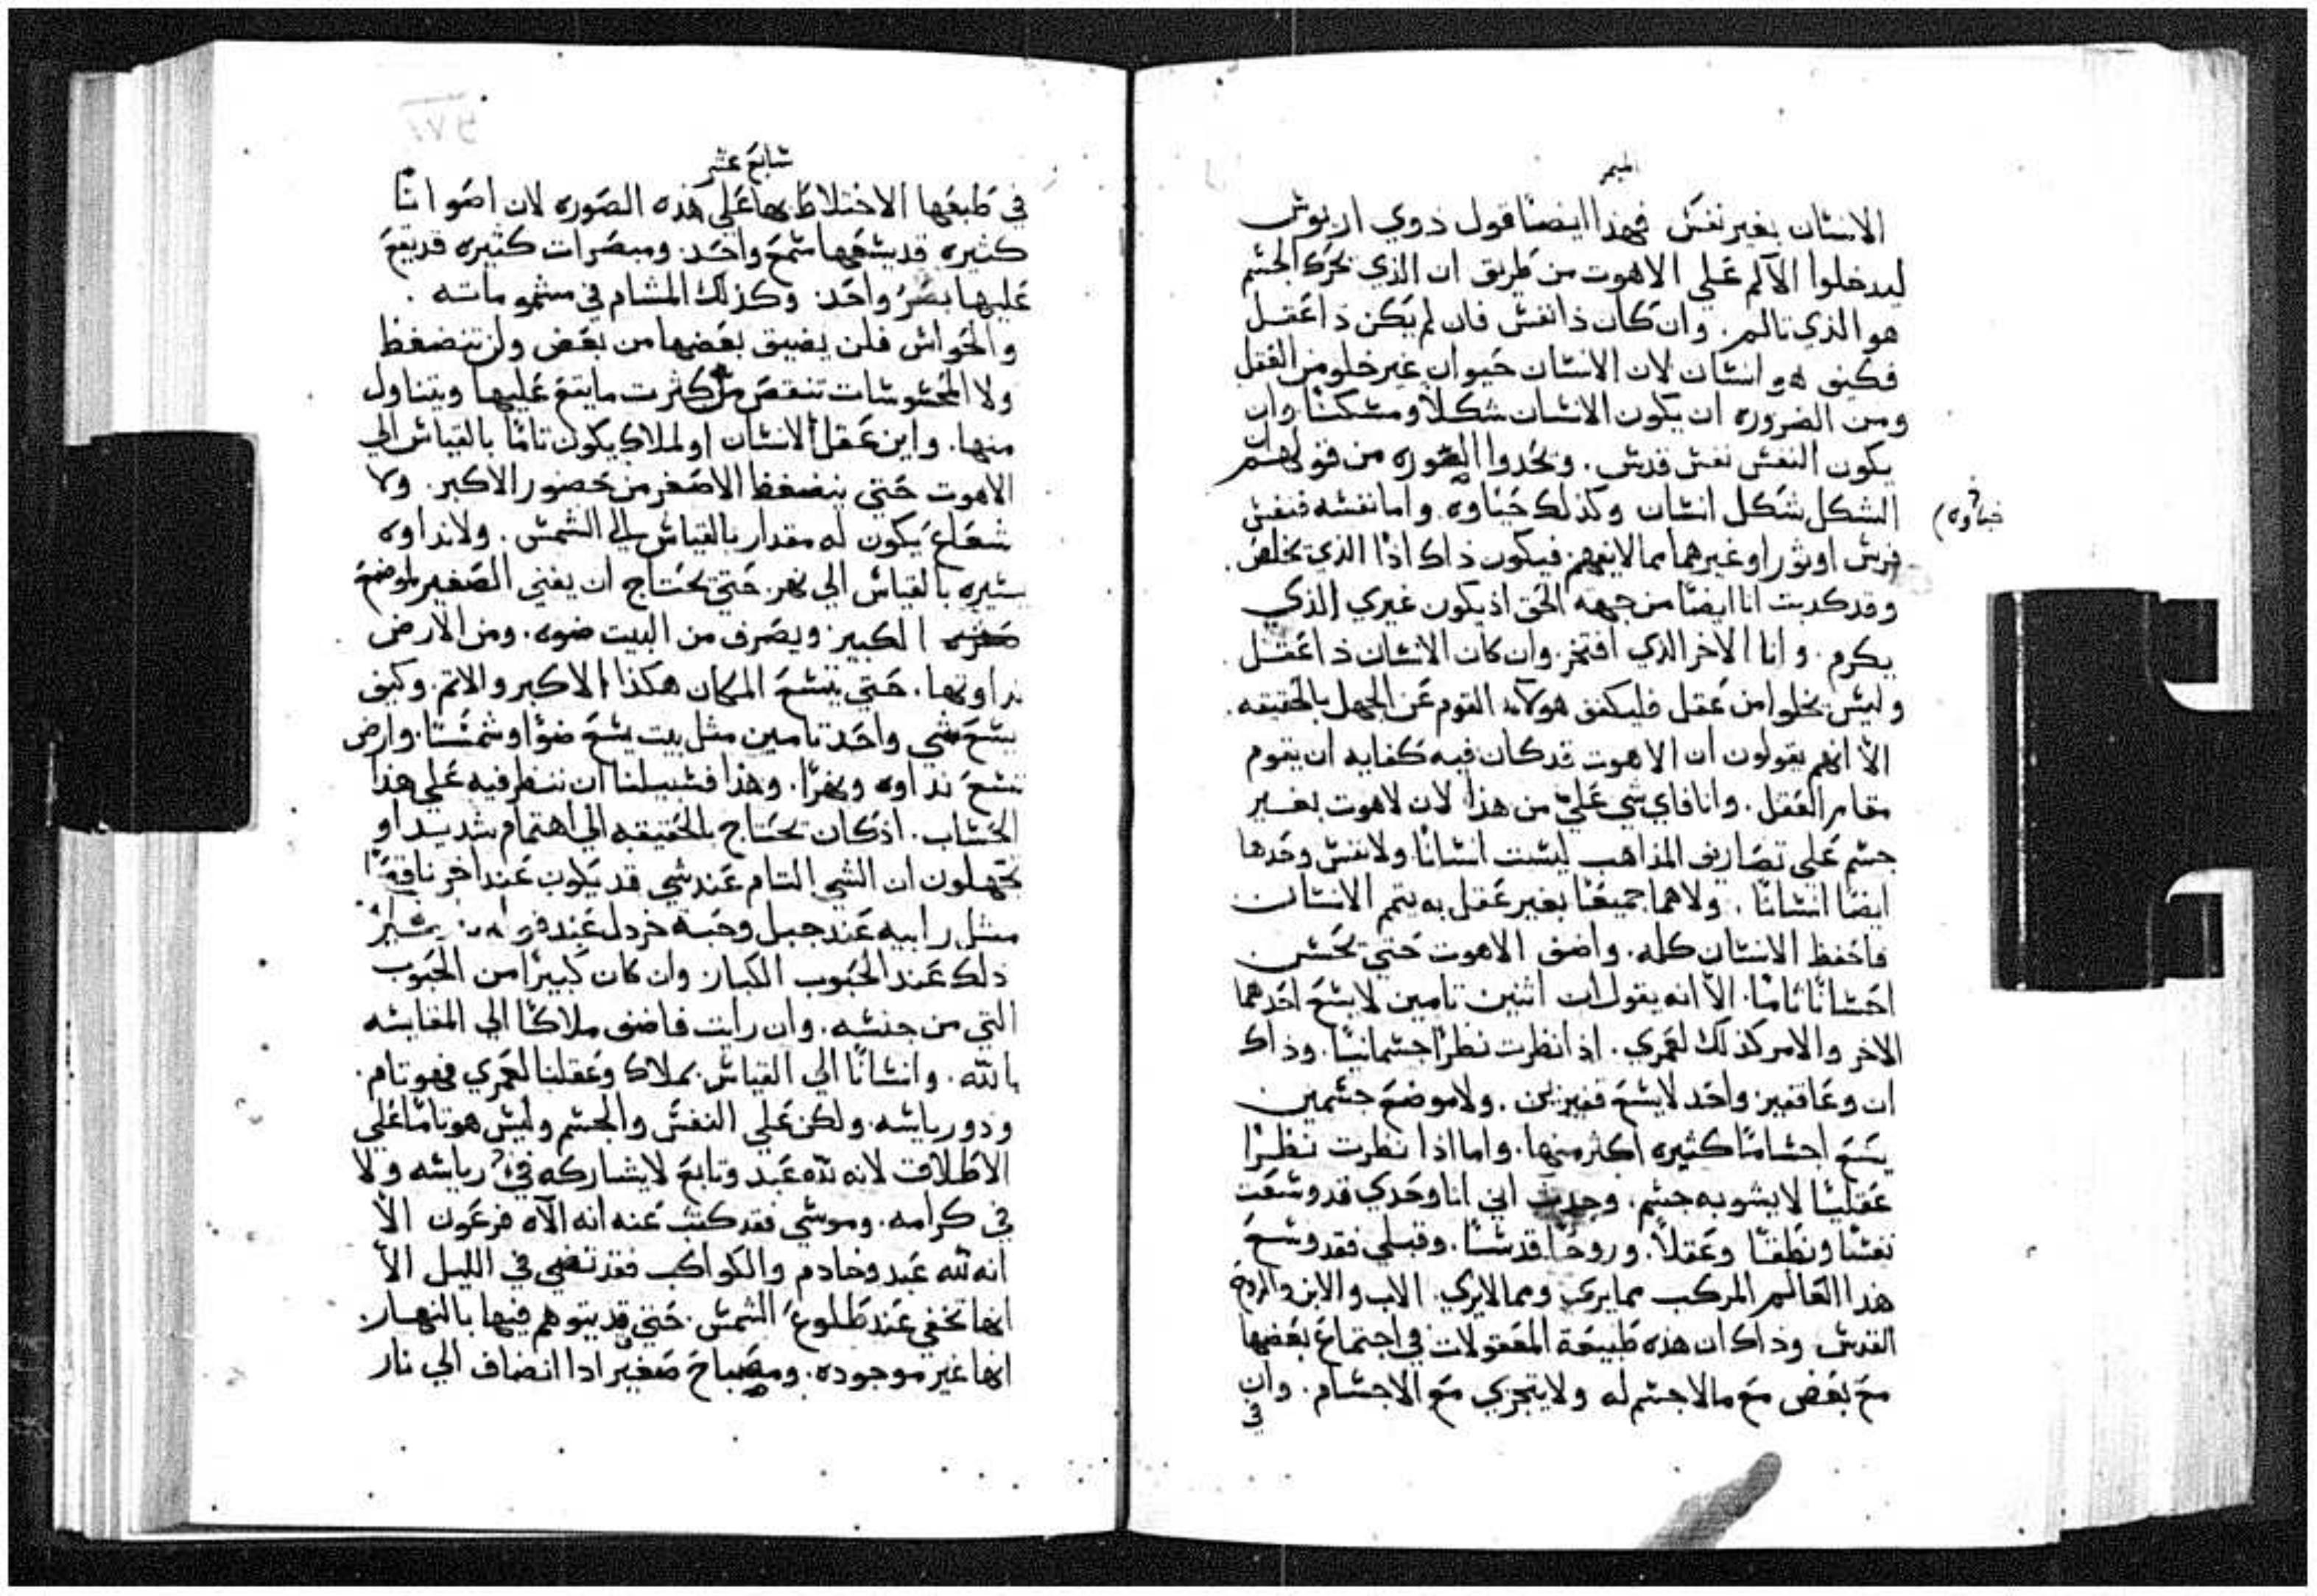 الميمر
الانسان بغير نفس فهذا ايضا قول ذوي اريوس
ليدخلوا الآلم علي الاهوت من طريق ان الذي يحرك الجسم
هو الذي تالم. وان كان ذا نفس فان لم يكن ذا عقل
فكيف هو انسان لان الانسان حيوان غير خلو من العقل
ومن الضروره ان يكون الانسان شكلاً ومسكنا وان
يكون النفس نفس قدس. ونحدوا الصوره من قولهم ان
الشكل شكل انسان وكذلك خباوه واما نفسه فنفس
خباوه
فرس او ثور او غيرهما مما لا يفهم فيكون ذاك اذًا الذي يخلص.
وقد كدبت انا ايضا من جهه الحق اذ يكون غيري الذي
يكرم. وانا الاخر الذي افتخر. وان كان الانسان ذا عقل
وليس يخلوا من عقل فليكفف هولاء القوم عن الجهل بالحقيقه.
الّا انهم يقولون ان الاهوت قد كان فيه كفايه ان يقوم
مقام العقل. وانا فاي شي عليّ من هذا لان لاهوت بغير
جسم علي تصاريف المذاهب ليست انسانًا ولا نفس وحدها
ايضا انسانا. ولا هما جميعًا بغير عقل به يتم الانسان
فاحفظ الانسان كله. واضف الاهوت حتي تحسن
احسانًا تامًا. الّا انه يقول ان اثنين تامين لا يسع احدهما
الاخر والامر كذلك لعمري. اذا نظرت نظرًا جسمانيا. وذاك
ان وعا قفيز واحد لا يسع قفيزين. ولا موضع جسمين
يسع اجسامًا كثيره اكثر منها. واما اذا نظرت نظرًا
عقليًا لا يشوبه جسم. وجدت اني انا وحدي قد وسعت
نفسًا ونطقًا وعقلاً. وروحًا قدسًا. وقبلي فقد وسع
هذا العالم المركب مما يري ومما لا يري الاب والابن والروح
القدس وذاك ان هذه طبيعة المعقولات في اجتماع بعضها
مع بعض مع ما لا جسم له ولا يتجزي مع الاجسام. وان
في
سابع عشر
في طبعها الاختلاط بها علي هذه الصوره لان اصواتًا
كثيره قد يسعها سمع واحد. ومبصرات كثيره قد يقع
عليها بصر واحد. وكذلك المشام في مشموماته.
والحواس فلن يضيق بعضها من بعض ولن تنضغط
ولا المحسوسات تنقص من كثرت ما يقع عليها ويتناول
منها. واين عقل الانسان او لملاك يكون تامًا بالقياس الي
الاهوت حتي ينضغط الاصغر من حضور الاكبر. ولا
شعاع يكون له مقدار بالقياس الي الشمس. ولا نداوه
يسيره بالقياس الي نهر. حتي يحتاج ان يفني الصغير لموضع
الكبير ويصرف من البيت ضوه. ومن الارض
نداوتها. حتي يتسع المكان هكذا الاكبر والاتم. وكيف
يسع شي واحد تامين مثل بيت يسع ضوًا وشمسًا. وارض
تسع نداوه ونهرًا. وهذا فسبيلنا ان ننظر فيه علي هذا
الحساب. اذ كان يحتاج بالحقيقه الي اهتمام شديد او
تجهلون ان الشي التام عند شي قد يكون عند اخر ناقصًا
مثل رابيه عند جبل وحبة خردل عند
ذلك عند الحبوب الكبار وان كان كبيرًا من الحبوب
التي من جنسه. وان رايت فاضف ملاكًا الي المقايسه
بالله. وانسانًا الي القياس بملاك وعقلنا لعمري فهو تام.
وذو رياسه ولكن علي النفس والجسم وليس هو تامًا علي
الاطلاق لانه لله عبد وتابع لا يشاركه في رياسه ولا
في كرامه. وموسي فقد كتب عنه انه الآه فرعون الّا
انه لله عبد وخادم والكواكب فقد تضي في الليل الّا
انها تخفي عند طلوع الشمس. حتي قد يتوهم فيها بالنهار.
انها غير موجوده. ومصباح صغير اذا انضاف الي نار